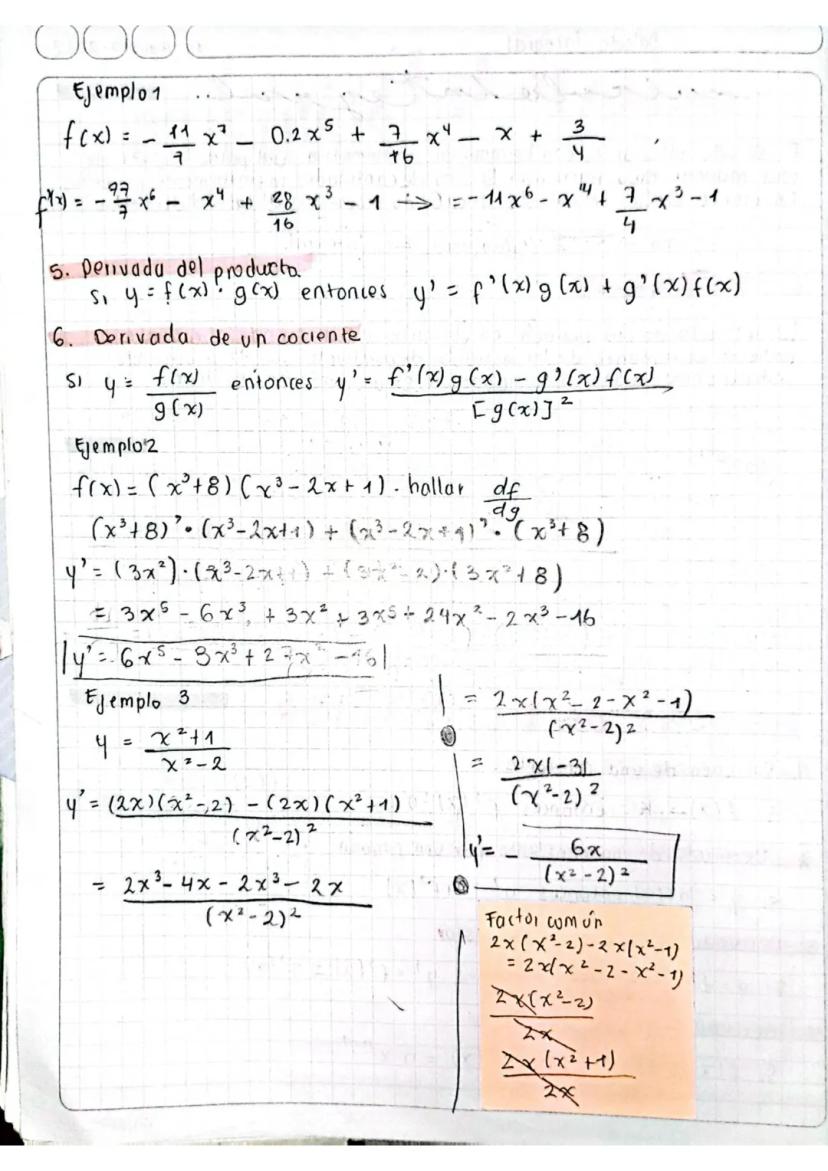 Ejemplo 1
f(x) = - 11/7 x⁷ - 0.2x⁵ + 7/16 x⁴ - x + 3/4
f'(x) = - 77/7 x⁶ - x⁴ + 28/16 x³ - 1 → = -11x⁶ - x⁴ + 7/4 x³ - 1
5. Derivada del producto.
Si y = f(x) · g(x) entonces y' = f'(x) g(x) + g'(x) f(x)
6. Derivada de un cociente
Si y = f(x)/g(x) entonces y' = f'(x) g(x) - g'(x) f(x) / [g(x)]²
Ejemplo 2
f(x) = (x³+8) (x³ - 2x + 1) . hallar df/dg
(x³+8)' · (x³-2x+1) + (x³-2x+1)' · (x³+8)
y' = (3x²) · (x³-2x+1) + (3x²-2) · (3x²+8)
= 3x⁵ - 6x³ + 3x² + 3x⁵ + 24x² - 2x³ - 16
y' = 6x⁵ - 8x³ + 27x² - 16
Ejemplo 3
y = x²+1 / x²-2
y' = (2x)(x²-2) - (2x)(x²+1) / (x²-2)²
= 2x³ - 4x - 2x³ - 2x / (x²-2)²
= 2x(x² - 2 - x² - 1) / (x²-2)²
= 2x(-3) / (x²-2)²
y' = - 6x / (x²-2)²
Factor común
2x(x²-2) - 2x(x²-1)
= 2x(x² - 2 - x² - 1)
2x(x²-2)
2x
2x(x²+1)
2x